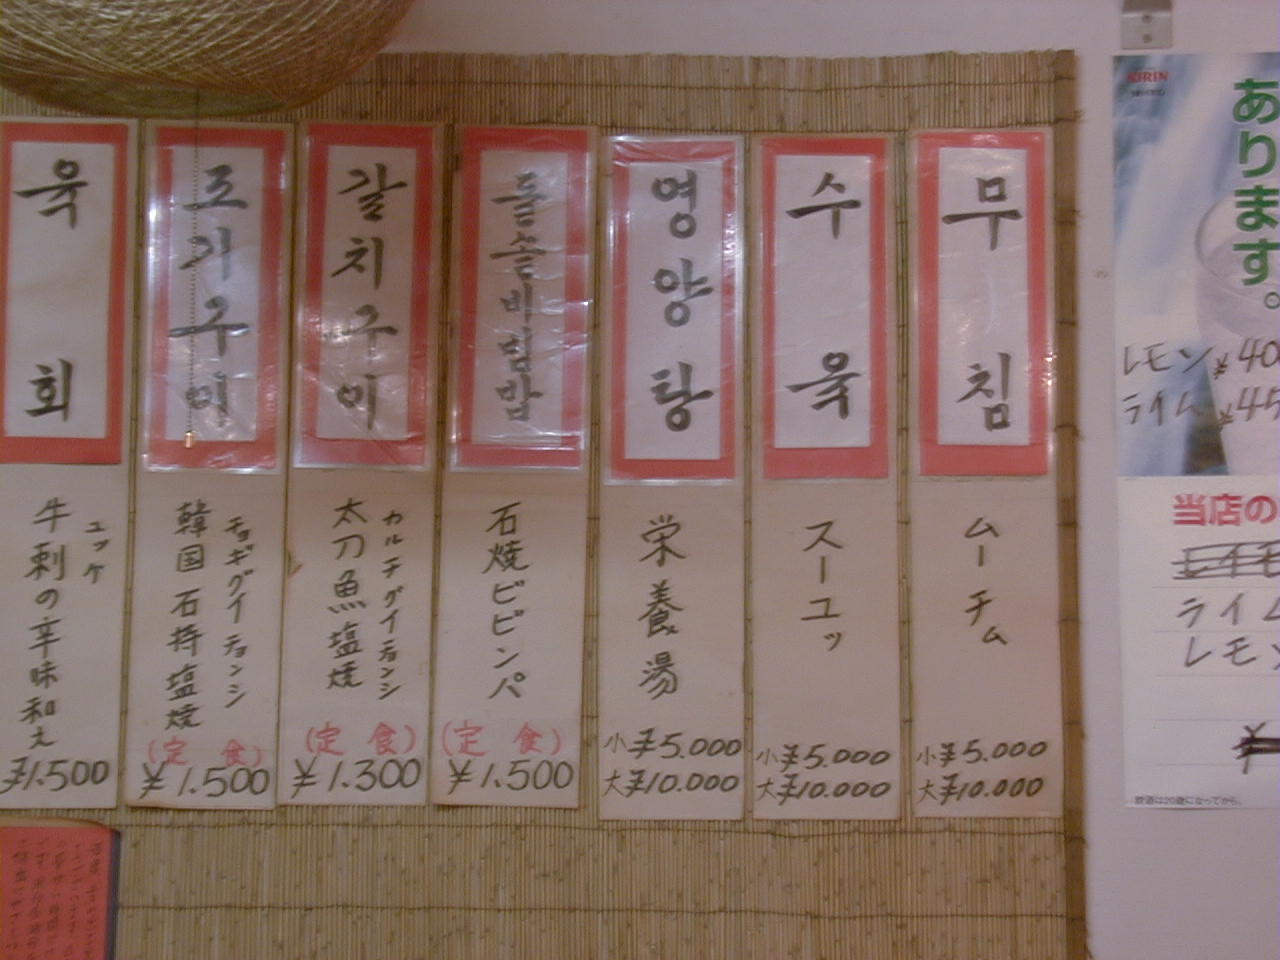 육회
ユッケ
牛刺の辛味和え
¥1.500
조기구이
チョギグイチョンシ
韓国石持塩焼
(定食)
¥1.500
갈치구이
カルチグイチョンシ
太刀魚塩焼
(定食)
¥1.300
돌솥비빔밥
石焼ビビンパ
(定食)
¥1.500
영양탕
栄養湯
小¥5.000
大¥10.000
수육
スーユッ
小¥5.000
大¥10.000
무침
ムーチム
小¥5.000
大¥10.000
KIRIN
あります。
レモン¥40
ライム¥45
当店の
ライム
レモン
¥
飲酒は20歳になってから。